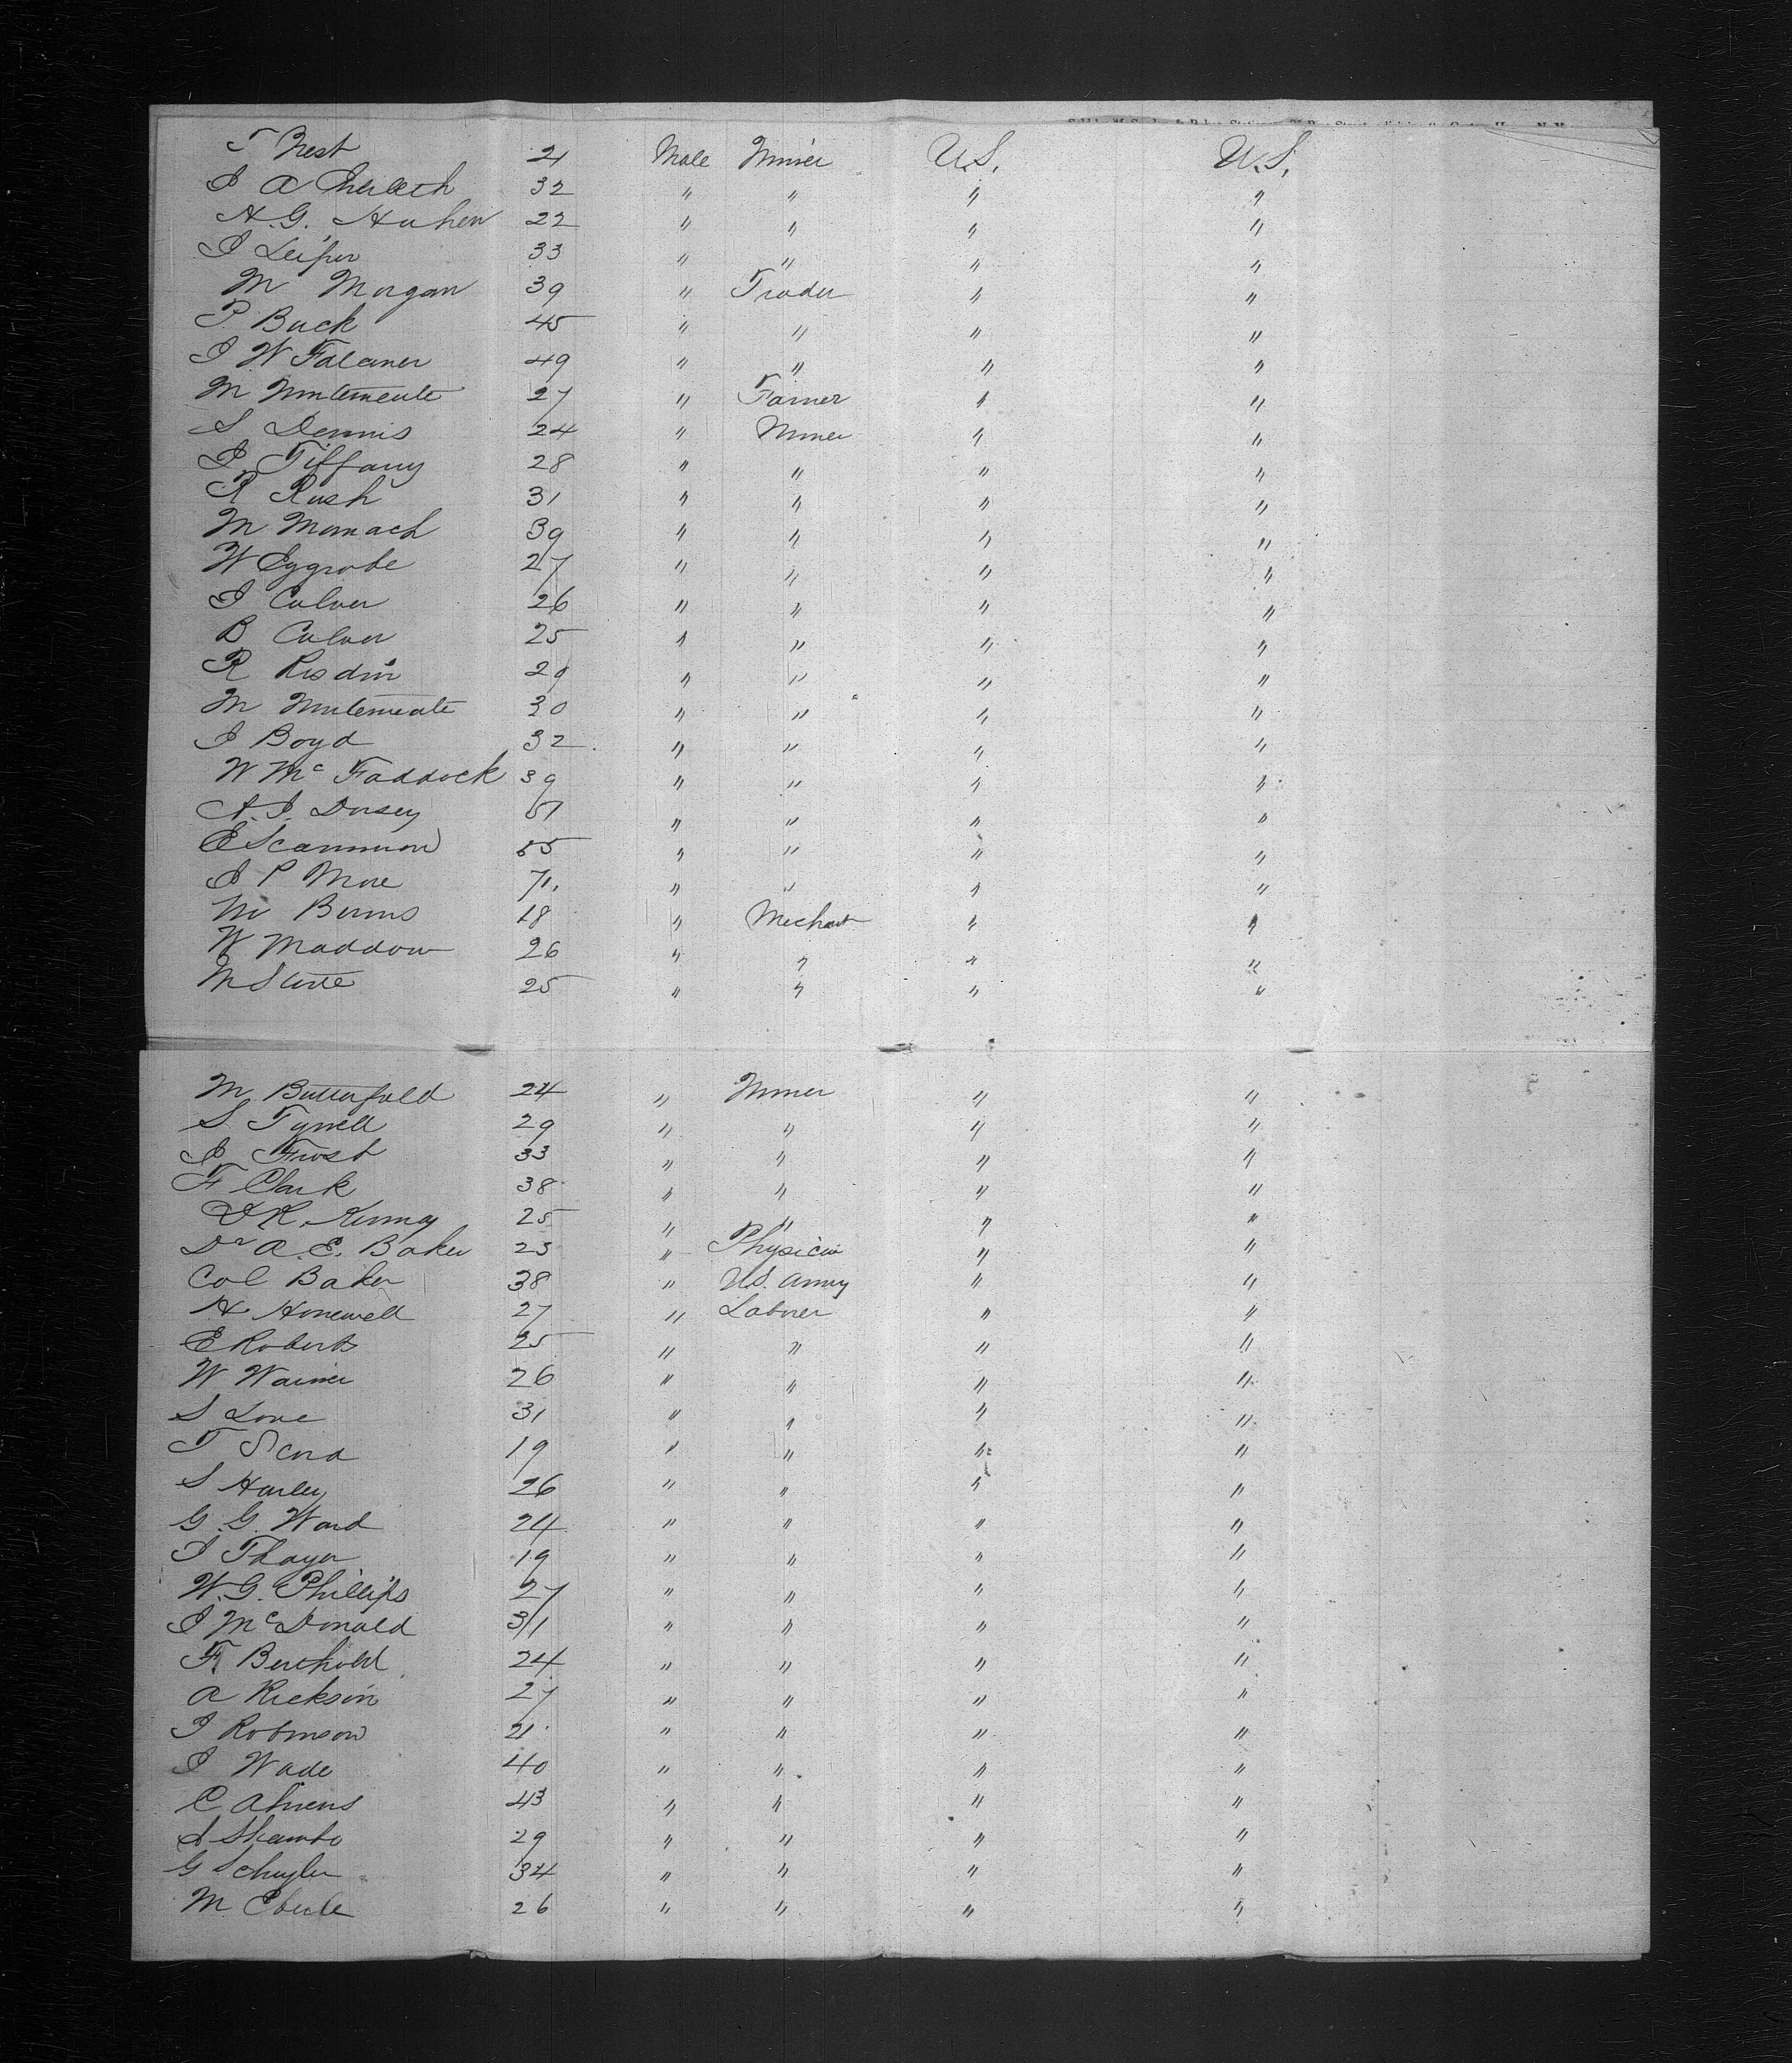 T West 21 Male Miner U.S. U.S.
J A 32 " " " "
H. G. 22 " " " "
J Leiper 33 " " " "
M Morgan 39 " Trader " "
P. Buck 45 " " " "
J W Falconer 49 " " " "
M 27 " Farmer " "
S Dennis 24 " Miner " "
J Tiffany 28 " " " "
R Rush 31 " " " "
M 39 " " " "
W 27 " " " "
J Culver 26 " " " "
B Culver 25 " " " "
R Risdon 29 " " " "
M 30 " " " "
J Boyd 32 " " " "
W Mc Faddock 39 " " " "
A. J. Dorsey 51 " " " "
E Scammon 55 " " " "
J P More 71. " " " "
M Burns 18 " Mechant " "
W Maddow 26 " " " "
M 25 " " " "
M Butterfield 24 " Miner " "
S. Tyrrell 29 " " " "
J Frost 33 " " " "
F Clark 38 " " " "
K. Kenny 25 " " " "
Dr A. E. Baker 23 " Physician " "
Col Baker 38 " U.S. Army " "
H Honewell 27 " Laborer " "
E Roberts 25 " " " "
W Warner 26 " " " "
S Love 31 " " " "
T 19 " " " "
S Harley 26 " " " "
G. G. Ward 24 " " " "
J Thayer 19 " " " "
W. G. Phillips 27 " " " "
J McDonald 31 " " " "
F Berthold 24 " " " "
A Rickson 27 " " " "
J Robinson 21 " " " "
J Wade 40 " " " "
C Ahrens 43 " " " "
Shambo 29 " " " "
G Schuyler 34 " " " "
M Eberle 26 " " " "